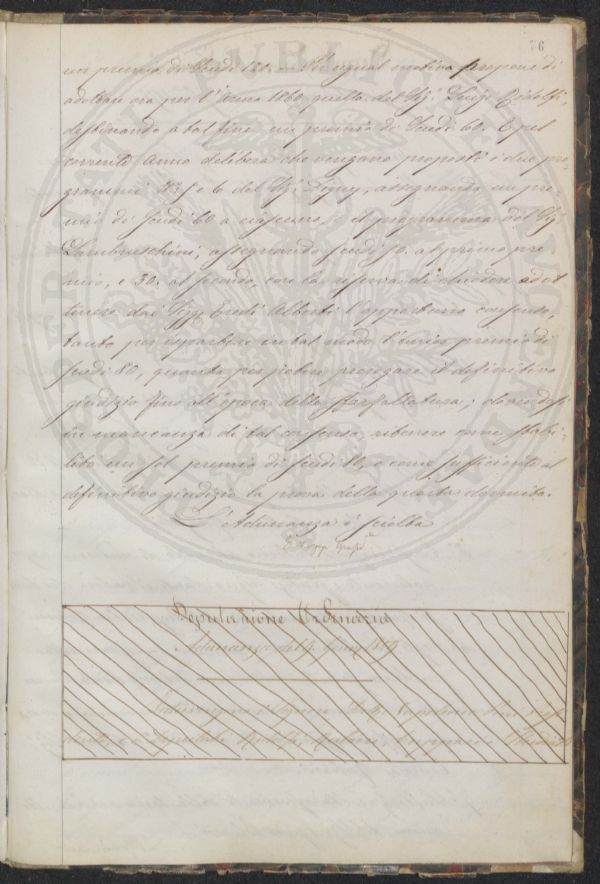 76
un premio di Scudi 120. Per egual motivo propone di
adottare ora per l'anno 1860 quello del Sig. Luigi Ridolfi,
destinando a tal fine un premio di Scudi 60. E pel
corrente anno delibera che vengano proposti i due pro-
grammi N. 5 e 6 del Sig. Digny, assegnando un pre-
mio di Scudi 60 a ciascuno, e il programma del Sig.
Lambruschini, assegnando Scudi 50. al primo pre-
mio, e 30. al secondo, con la riserva di chiedere ed ot
tenere dai Sigg. Eredi Alberti l'opportuno consenso,
tanto per repartire in tal modo l'unico premio di
Scudi 80, quanto per potere prorogare il definitivo
giudizio fino all'epoca della sfarfallatura; dovendosi
in mancanza di tal consenso, ritenere come stabi-
lito un sol premio di Scudi 80, e come sufficiente al
definitivo giudizio la prova della quarta dormita.
L'Adunanza è sciolta
Deputazione Ordinaria
Adunanza del
Intervengono i Signori
e i Deputati Ridolfi,